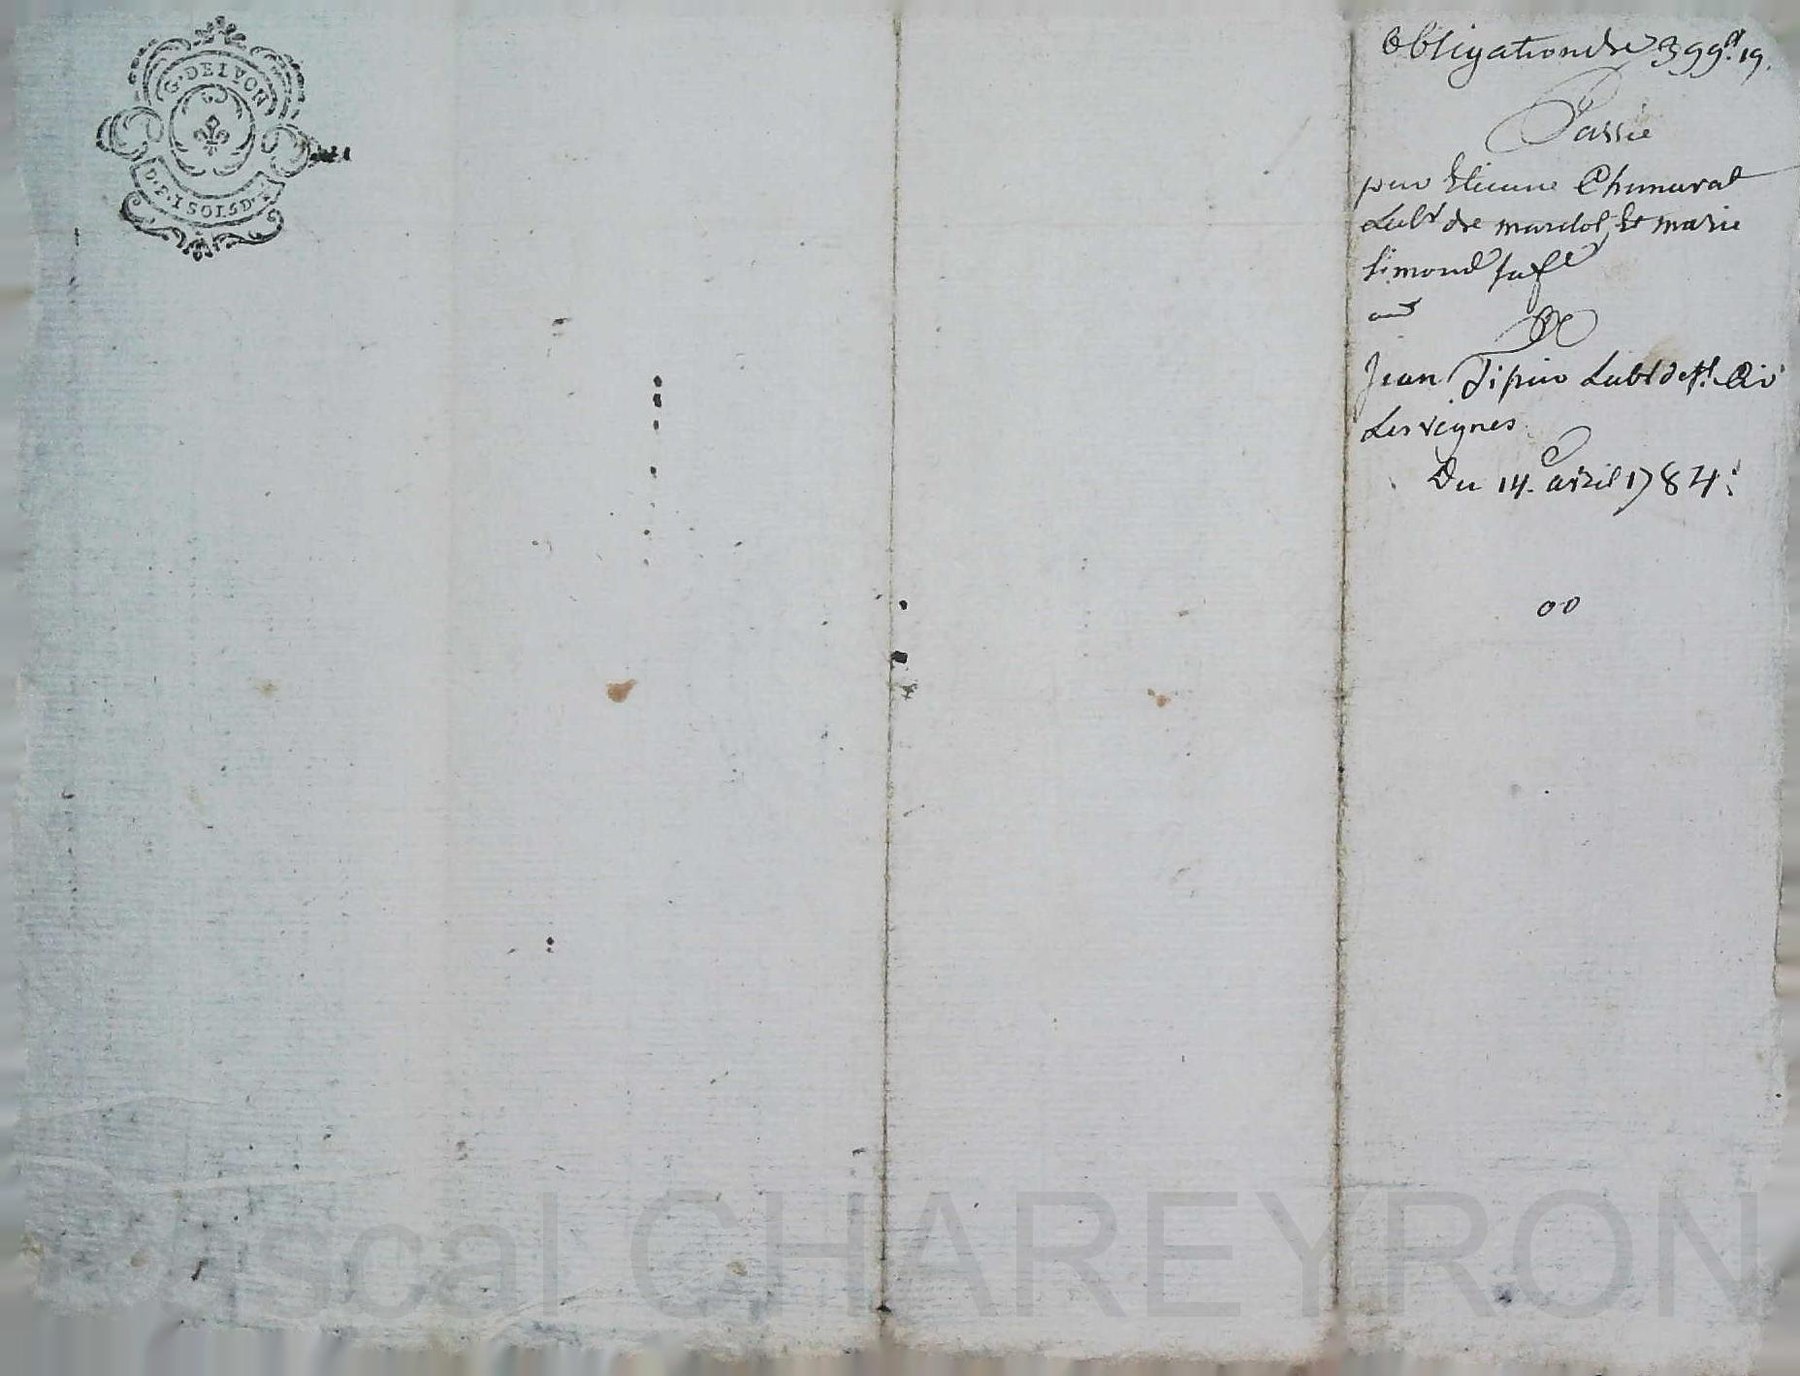 G. DE LYON
D. P. 1 SOL 8 D.
Obligation de 399lt. 19.
Passée
par Etienne Chanaval
Labr de mardol, Et marie
Simond sa fe
au
Jean Tipin Labr de St. Cir
Les vignes
Du 14. avril 1784.
00
Pascal CHAREYRON